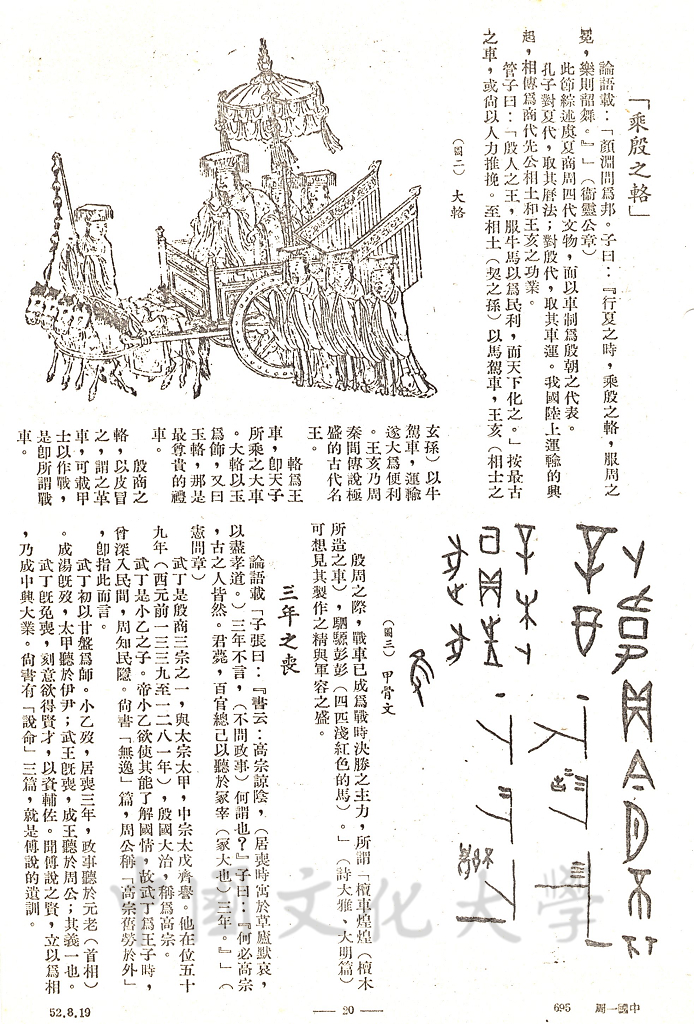 「乘殷之輅」
論語載：「顏淵問爲邦。子曰：『行夏之時，乘殷之輅，服周之
冕，樂則韶舞。』」（衞靈公章）
此節綜述虞夏商周四代文物，而以車制爲殷朝之代表。
孔子對夏代，取其曆法；對殷代，取其車運。我國陸上運輸的興
起，相傳爲商代先公相土和王亥之功業。
管子曰：「殷人之王，服牛馬以爲民利，而天下化之。」按最古
之車，或尙以人力推挽。至相土（契之孫）以馬駕車，王亥（相土之
（圖二）　大輅
玄孫）以牛
駕車，運輸
遂大爲便利
。王亥乃周
秦間傳說極
盛的古代名
王。
輅爲王
車，卽天子
所乘之大車
。大輅以玉
爲飾，又曰
玉輅，那是
最尊貴的禮
車。
殷商之
輅，以皮冒
之，謂之革
車，可載甲
士以作戰，
是卽所謂戰
車。
（圖三）　甲骨文
殷周之際，戰車已成爲戰時決勝之主力，所謂「檀車煌煌（檀木
所造之車），駟騵彭彭（四匹淺紅色的馬）。」（詩大雅、大明篇）
可想見其製作之精與軍容之盛。
三年之喪
論語載「子張曰：『書云：高宗諒陰，（居喪時寓於草廬默哀，
以盡孝道。）三年不言，（不問政事）何謂也？』子曰：『何必高宗
，古之人皆然。君薨，百官總己以聽於冢宰（冢大也）三年。』」（
憲問章）
武丁是殷商三宗之一，與太宗太甲，中宗太戊齊譽。他在位五十
九年（西元前一三三九至一二八一年），殷國大治，稱爲高宗。
武丁是小乙之子。帝小乙欲使其能了解國情，故武丁爲王子時，
曾深入民間，周知民隱。尙書「無逸」篇，周公稱「高宗舊勞於外」
，卽指此而言。
武丁初以甘盤爲師。小乙歿，居喪三年，政事聽於元老（首相）
。成湯旣歿，太甲聽於伊尹；武王旣喪，成王聽於周公；其義一也。
武丁旣免喪，刻意欲得賢才，以資輔佐。聞傅說之賢，立以爲相
，乃成中興大業。尙書有「說命」三篇，就是傅說的遺訓。
中國文化大學
52.8.19
— 20 —
695
中國一周